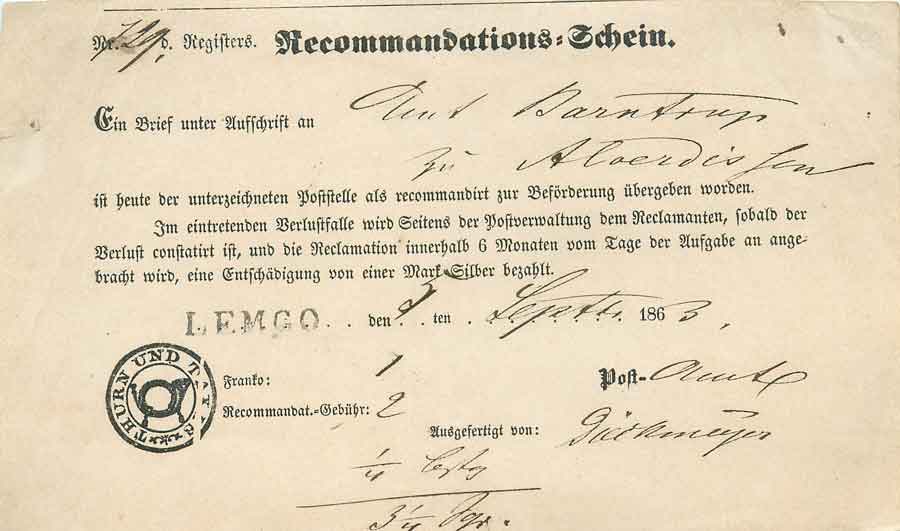 Nr. 729. d. Registers. Recommandations-Schein.
Ein Brief unter Aufschrift an Amt Barntrup
zu Alverdissen
ist heute der unterzeichneten Poststelle als recommandirt zur Beförderung übergeben worden.
Im eintretenden Verlustfalle wird Seitens der Postverwaltung dem Reclamanten, sobald der
Verlust constatirt ist, und die Reclamation innerhalb 6 Monaten vom Tage der Aufgabe an ange-
bracht wird, eine Entschädigung von einer Mark Silber bezahlt.
LEMGO den 5 ten Septbr. 1863.
THURN UND TAXIS
Franko: 1
Post-Amt
Recommandat.-Gebühr: 2
Ausgefertigt von:
1/4
3 1/4 Sgr.